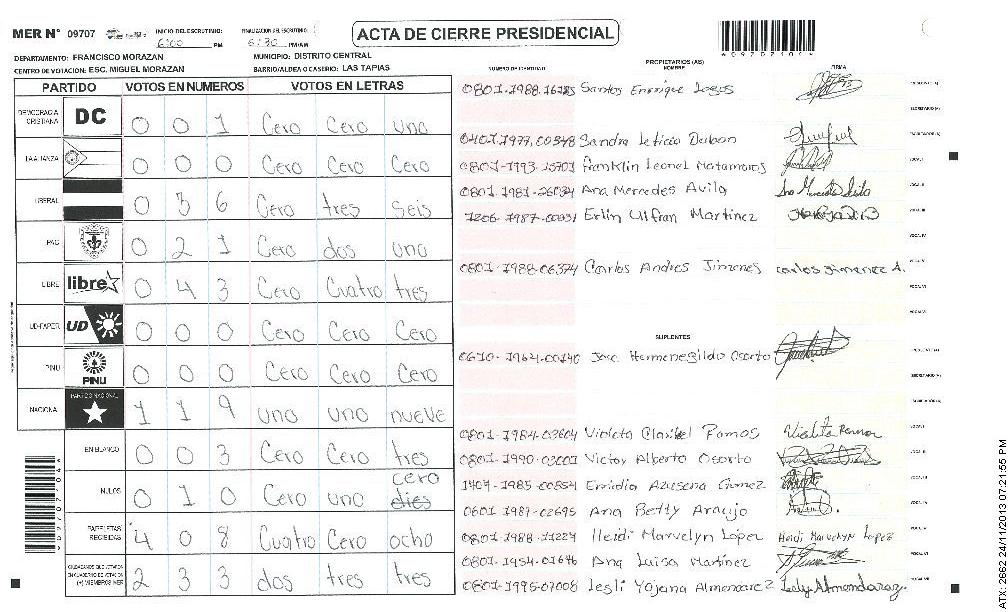 MER N° 09707
INICIO DEL ESCRUTINIO: 6:00 PM
FINALIZACION DEL ESCRUTINIO: 6:30 PM/AM
ACTA DE CIERRE PRESIDENCIAL
DEPARTAMENTO: FRANCISCO MORAZAN
MUNICIPIO: DISTRITO CENTRAL
CENTRO DE VOTACION: ESC. MIGUEL MORAZAN
BARRIO/ALDEA O CASERIO: LAS TAPIAS
PARTIDO VOTOS EN NUMEROS VOTOS EN LETRAS
DEMOCRACIA CRISTIANA DC 0 0 1 Cero Cero uno
LA ALIANZA 0 0 0 Cero Cero Cero
LIBERAL 0 3 6 Cero tres seis
PAC 0 2 1 Cero dos uno
LIBRE libre 0 4 3 Cero Cuatro tres
UD-FAPER UD 0 0 0 Cero Cero Cero
PINU PINU 0 0 0 Cero Cero Cero
NACIONAL PARTIDO NACIONAL 1 1 9 uno uno nueve
EN BLANCO 0 0 3 Cero Cero tres
NULOS 0 1 0 Cero uno cero dies
PAPELETAS RECIBIDAS 4 0 8 Cuatro Cero ocho
CIUDADANOS QUE VOTARON EN CUADERNO DE VOTACION (+) MIEMBROS MER 2 3 3 dos tres tres
NUMERO DE IDENTIDAD
PROPIETARIOS (AS)
NOMBRE
FIRMA
Santos Enrique Lagos
Sandra Leticia Dubon
Franklin Leonel Matamoros
0801-1981-26034 Ana Mercedes Avila
Erlin Ulfran Martinez
0801-1988-06374 Carlos Andres Jimenes Carlos Jimenez A.
SUPLENTES
Jose Hermenegildo Osorto
0801-1984-03604 Violeta Clasibel Ramos
Victor Alberto Osorto
1404-1985-00854 Emidia Azusena Gomez
0601-1987-02695 Ana Betty Araujo
0801-1988-11224 Heidi Marvelyn Lopez Heidi Marvelyn Lopez
0801-1954-01646 Ana Luisa Martinez
0801-1995-07008 Lesli Yojana Almendarez
ATX-2662 24/11/2013 07:21:55 PM